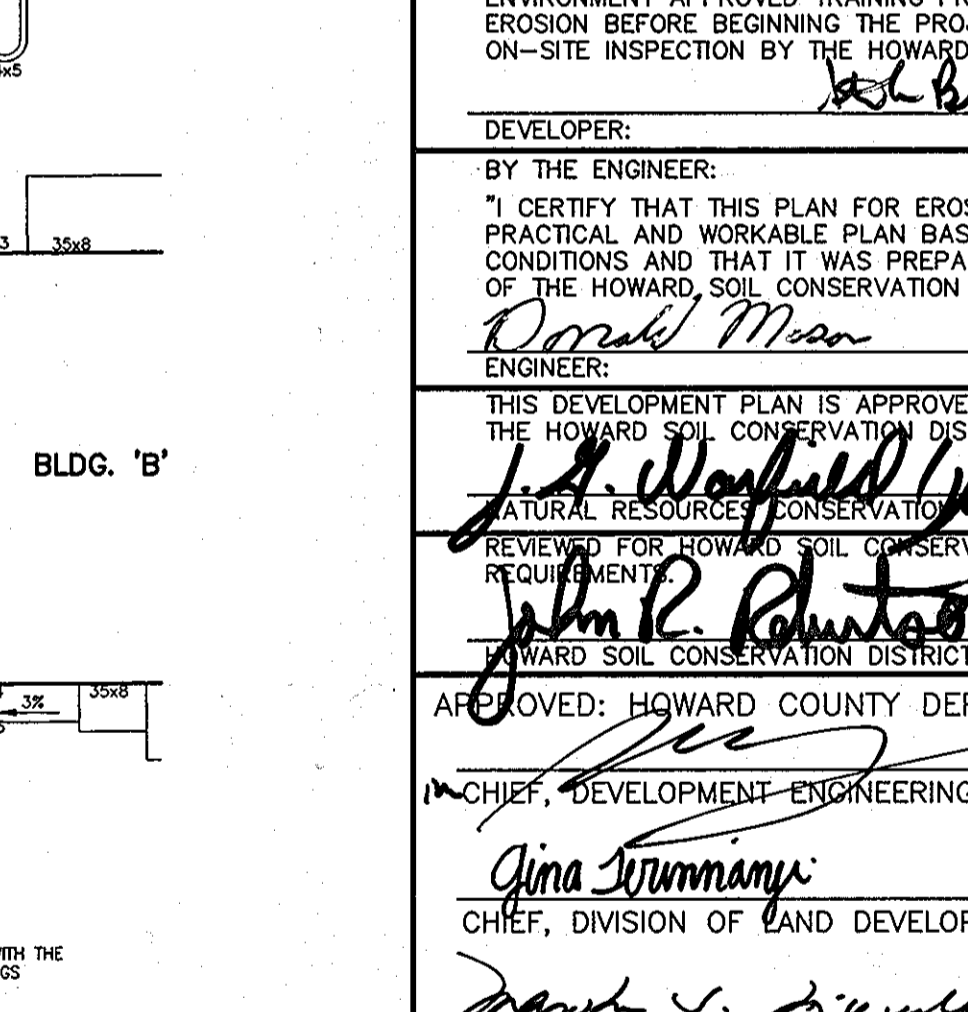 x5
3 35x8
BLDG. 'B'
3%
35x8
WITH THE
GS
ENVIRONMENT APPROVED TRAINING
EROSION BEFORE BEGINNING THE PROJ
ON-SITE INSPECTION BY THE HOWARD
DEVELOPER:
BY THE ENGINEER:
"I CERTIFY THAT THIS PLAN FOR EROS
PRACTICAL AND WORKABLE PLAN BAS
CONDITIONS AND THAT IT WAS PREPA
OF THE HOWARD SOIL CONSERVATION
Donald Mason
ENGINEER:
THIS DEVELOPMENT PLAN IS APPROVE
THE HOWARD SOIL CONSERVATION DIS
J. G. Warfield
NATURAL RESOURCES CONSERVATION
REVIEWED FOR HOWARD SOIL CONSERV
REQUIREMENTS.
John R. Robertso
HOWARD SOIL CONSERVATION DISTRICT
APPROVED: HOWARD COUNTY DEP
CHIEF, DEVELOPMENT ENGINEERING
Gina
CHIEF, DIVISION OF LAND DEVELOP